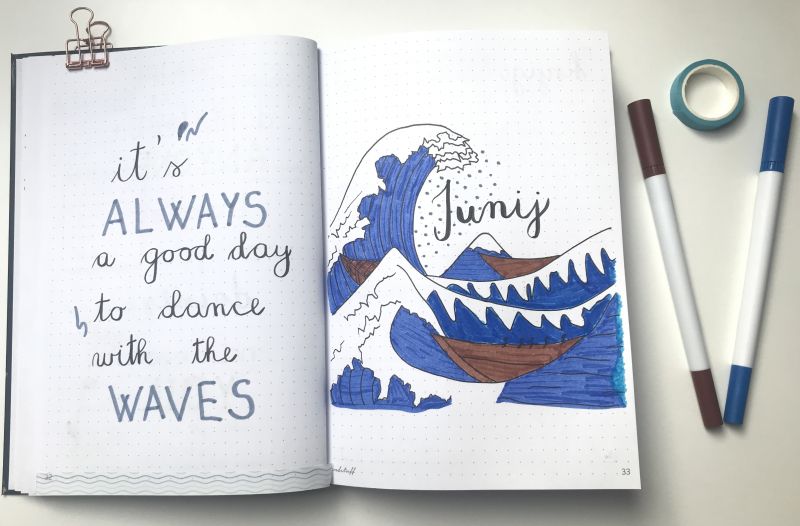 it's
ALWAYS
a good day
to dance
with the
WAVES
Junij
33